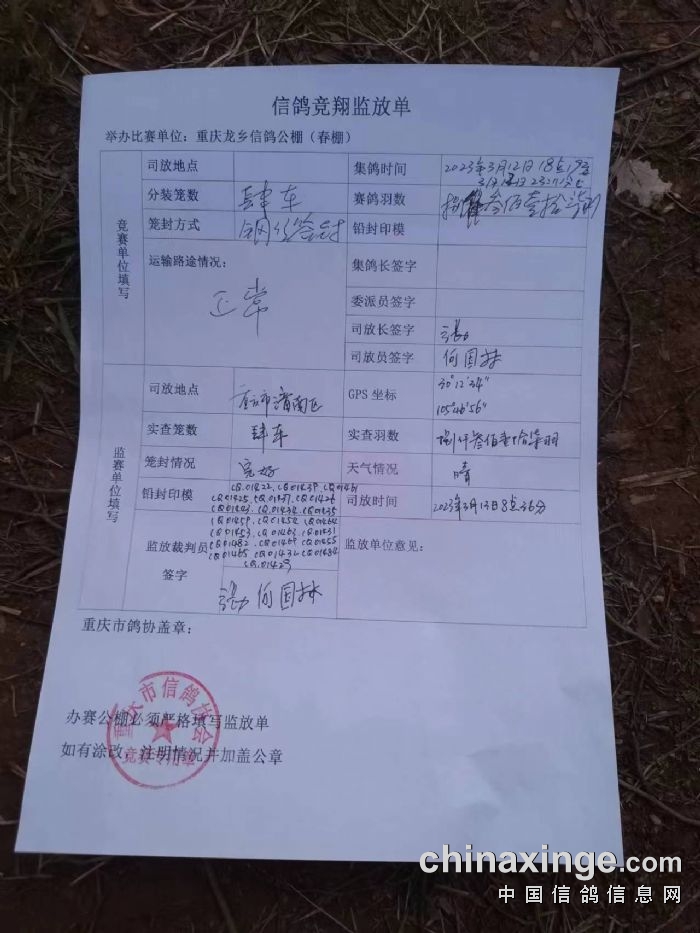 信鸽竞翔监放单
举办比赛单位：重庆龙乡信鸽公棚（春棚）
竞赛单位填写
司放地点
集鸽时间 2023年3月12日18点19分
分装笼数 肆车
赛鸽羽数
笼封方式
铅封印模
运输路途情况：
正常
集鸽长签字
委派员签字
司放长签字
司放员签字 何国林
监赛单位填写
司放地点
GPS 坐标 30°12′34″
105°46′56″
实查笼数 肆车
实查羽数 捌仟叁佰壹拾柒羽
笼封情况 完好
天气情况 晴
铅封印模
司放时间 2023年3月13日8点36分
监放裁判员
签字
何国林
监放单位意见：
重庆市鸽协盖章：
重庆市信鸽协会
竞赛专用章
办赛公棚必须严格填写监放单
如有涂改，注明情况并加盖公章
chinaxinge.com
中国信鸽信息网